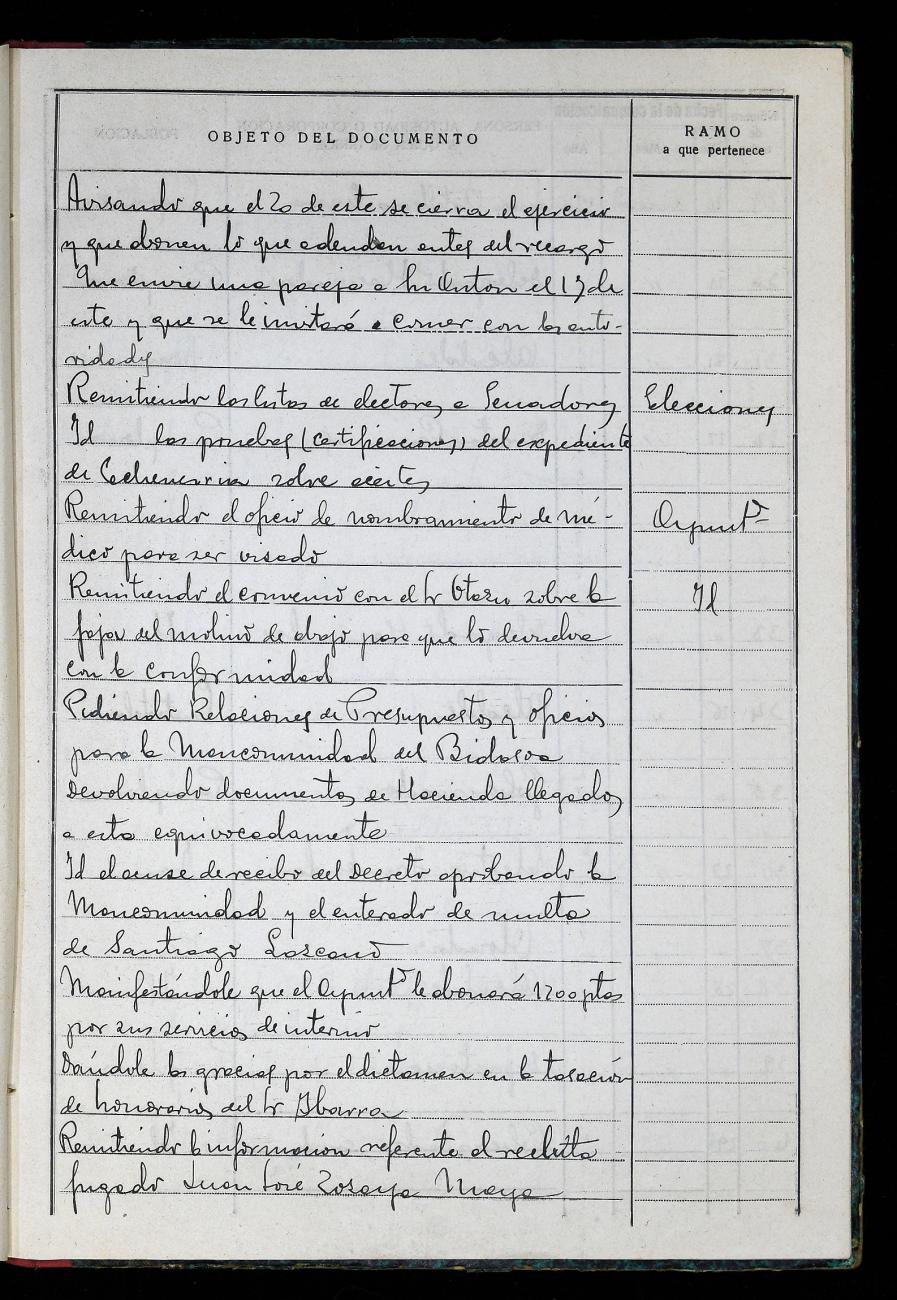 OBJETO DEL DOCUMENTO
RAMO
a que pertenece
Avisando que el 20 de este se cierra el ejercicio
y que abonen lo que adeudan antes del recargo
Que envie una pareja a San Anton el 17 de
este y que se le invitará a comer con las auto-
ridades
Remitiendo las listas de electores a Senadores
Elecciones
Id las pruebas (certificaciones) del expediente
de sobre aceites
Remitiendo el oficio de nombramiento de mé-
Ayuntº
dico para ser visado
Remitiendo el convenio con el Sr Otazu sobre la
Id
del molino de abajo para que lo devuelva
con la conformidad
Pidiendo Relaciones de Presupuestos y oficios
para la Mancomunidad del Bidasoa
Devolviendo documentos de Hacienda llegados
a esta equivocadamente
Id el acuse de recibo del Decreto aprobando la
Mancomunidad y el enterado de multa
de Santiago Lazcano
Manifestándole que el Ayuntº le abonará 1200 ptas
por sus servicios de interino
Dándole las gracias por el dictamen en la tasación
de honorarios del Sr Ibarra
Remitiendo la informacion referente al recluta
fugado Juan José Zozaya Maya